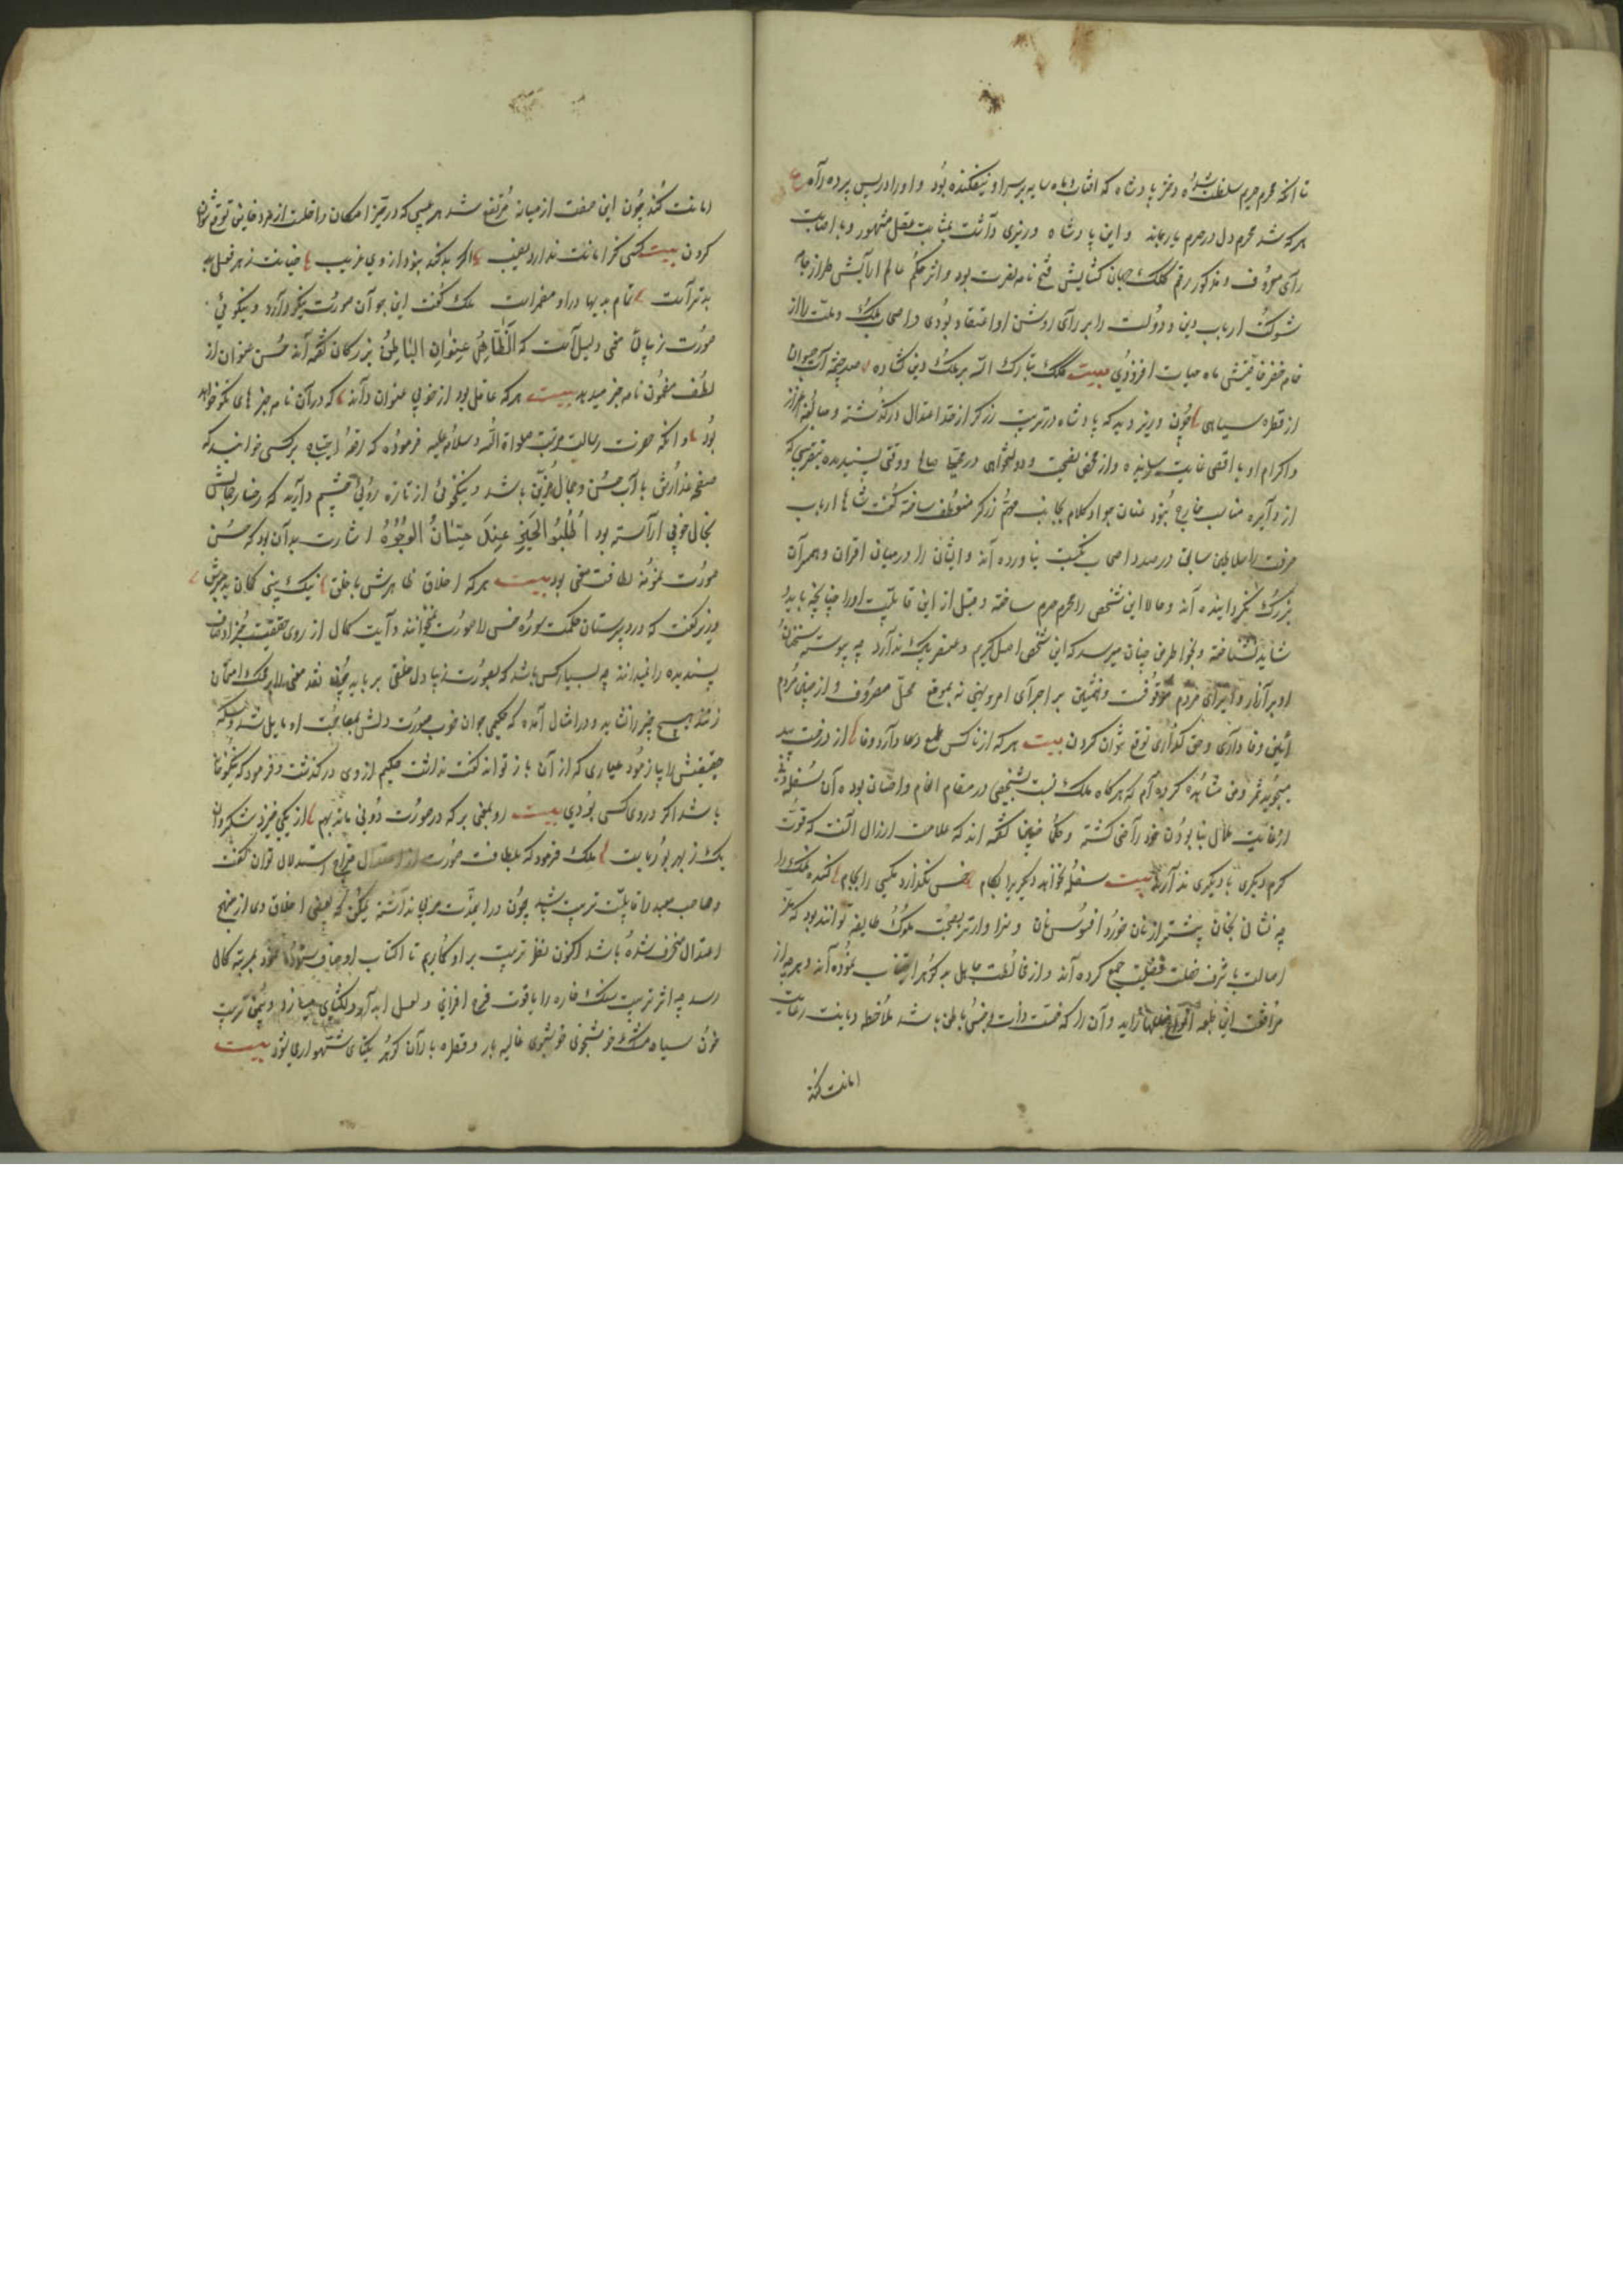 تا آنکه محرم حریم سلطنت شده دختر پادشاه که افتاب و ماه سایه بر سر او نیفکنده بود و او را در پس پرده راه
هر که شد محرم دل در حرم یار بماند و این پادشاه وزیری داشت بمثابت عقل مشهور و باصابت
رای معروف و مذکور رقم کلک جهان کشایش فتح نامه نصرت بود و اثر حکم عالم ارایش طراز جامه
شوکت ارباب دین و دولت را بر رای روشن او اعتقاد بودی و اصحاب ملک و ملت را از
خامه خضر خاصیتش ماه حیات افزودی بیت کلک تبارک الله بر ملک دین کشاده صد چشمه آب حیوان
از قطره سیاهی چون وزیر دید که پادشاه در تربیت زرکر از حد اعتدال درکذشته و مبالغه اعزاز
و اکرام او باقصی غایت رسانیده و از محض نصیحت و دولتخواهی در محلی صالح و وقتی پسندیده بتقریبی که
از دایره مناسب خارج نبود عنان جواد کلام بجانب مهم زرکر منعطف ساخته گفت شاها ارباب
حرفت را سلاطین سابق در صدد اصحاب نکبت نیاورده اند و ایشان را در میان اقران و همسران
بزرک نکردانیده اند و حالا این شخص را محرم حرم ساخته و قبل از این قابلیت او را چنانچه باید و
شاید نشناخته و بخاطر من چنان میرسد که این شخص اصل کریم و عنصر پاک ندارد چه پیوسته سخنان
او بر آزار و ایذای مردم موقوفست و همتش بر اجرای امر و نهی نه بموقع محل مصروف و از چنین مردم
آئین وفاداری و حق کذاری توقع نتوان کردن بیت هر که از ناکس طمع دارد وفا از درخت بید
میجوید ثمر و من مشاهده کرده ام که هرکاه ملک نسبت بشخصی در مقام انعام و احسان بوده آن سفله
از غایت ملال بنابودن خود راضی کشته و حکما گفته اند که علامت ارزال آنست که قوت
کرم دیکری با دیکری ندارند بیت سفله نخواهد دیکریرا بکام خس نکذارد مکسی را بجام
چه نشانی بخان پیشتر از نان خورد افسوس نان و سزاوارتر بصحبت ملوک طایفه توانند بود که
اصالت با شرف خصلت فضیلت جمع کرده اند و از مخالطت جاهل بد کوهر اجتناب نموده اند و هر چه از
مرافقت این طبقه انواع خللها زاید و آن را که خست ذات و خبث باطن باشد ملاحظه دیانت رعایت
امانت کند
امانت کند چون این صفت از میانه مرتفع شد هر عیبی که در حیز امکان داخلست از مردم خاین توقع توان
کردن بیت کسی کز امانت ندارد نصیب اکر بد کند نبود از وی غریب خیانت ز هر فعل بد
بدترآمت تمام بدیها در او مضمراست ملک گفت این جوان صورت نیکو دارد و نیکوئی
صورت زیبای معنی دلیل است که الظاهر عنوان الباطن بزرکان گفته اند حسن عنوان از
لطف مضمون نامه خبر میدهد بیت هر که عاقل بود از خوبی عنوان داند که در آن نامه خبر های نکو خواهد
بود و آنکه حضرت رسالت مرتبت صلواة الله و سلامه علیه فرموده که رقعه احتیاج بر کسی خوانید که
صفحه عذارش بآب حسن و جمال مزین باشد و نیکوئی از تازه روئی چشم دارید که رضاره حالش
بخال خوبی آراسته بود اطلبوا الخیر عندک حسان الوجوه اشارت بدان بود که حسن
صورت نمونه لطافت معنی بود بیت هر که اخلاق ظاهرش باخلق نیک بینی کمان بد مبرش
وزیر کفت که در دبیرستان حکمت سوره حسن را صورت نخوانند و آیت کمال از روی حقیقت بجز اوصاف
پسندیده را نمیدانند چه بسیار کس باشد که بصورت زیبا دل خلقی برباید چون نقد معنی را بر محک امتحان
زنند هیچ چیز را نشاید و در امثال آمده که حکیمی جوان خوب صورت دلش بمصاحبت او مایل شد و سکه
حقیقتش را بیازمود عیاری که از آن باز تواند کفت نداشت حکیم از وی درکذشت و فرمود که نیکو خانه
باشد اکر در وی کس بودی بیت رو بمعنی بر که در صورت دو نی مانند بهم از یکی خیزد شکر وان
یک ز بهر بوریاست ملک فرمود که بلطافت صورت از اعتدال مزاج استدلال توان کفت
و صاحب معتدل را قابلیت تربیت باشد چون در ابتدا مربی نداشته ممکن که بعضی اخلاق وی از منهج
اعتدال منحرف شده باشد اکنون نظر تربیت بر او کماریم تا اکتساب اوصاف ستوده نموده بمرتبه کمال
رسد چه اثر تربیت سنک خاره را یاقوت فرح افزای و لعل آبدار دلکشای میسازد و بیمن تربیت
خون سیاه مشک خوشخوی خوشبوی غالیه بار و قطره باران کوهر یکتای شهواری شود بیت